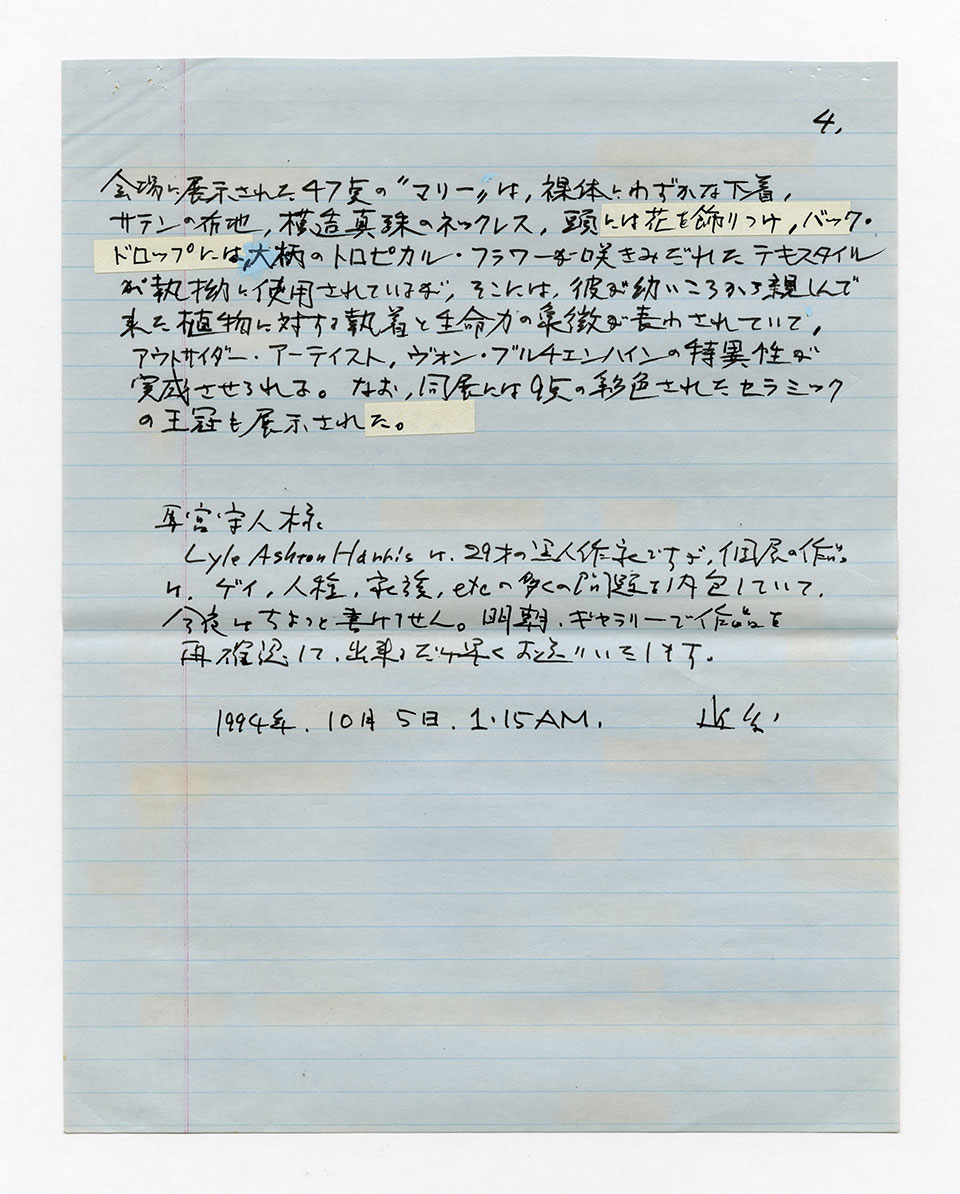 4.
会場に展示された47点の"マリー"は，裸体にわずかな下着，
サテンの布地，模造真珠のネックレス，頭には花を飾りつけ，バック・
ドロップには，大柄のトロピカル・フラワーが咲きみだれたテキスタイル
が執拗に使用されているが，そこには，彼が幼いころから親しんで
来た植物に対する執着と生命力の象徴が表わされていて，
アウトサイダー・アーティスト，ヴォン・ブルチェンハインの特異性が
実感させられる。なお，同展には9点の彩色されたセラミック
の王冠も展示された。
宮守人様
Lyle Ashton Harris は．29才の新人作家ですが，個展の作品
は．ゲイ，人種，家族，etcの多くの問題を内包していて．
今夜はちょっと書けません。明朝．ギャラリーで作品を
再確認して．出来るだけ早くお送りいたします。
1994年．10月5日．1:15AM．